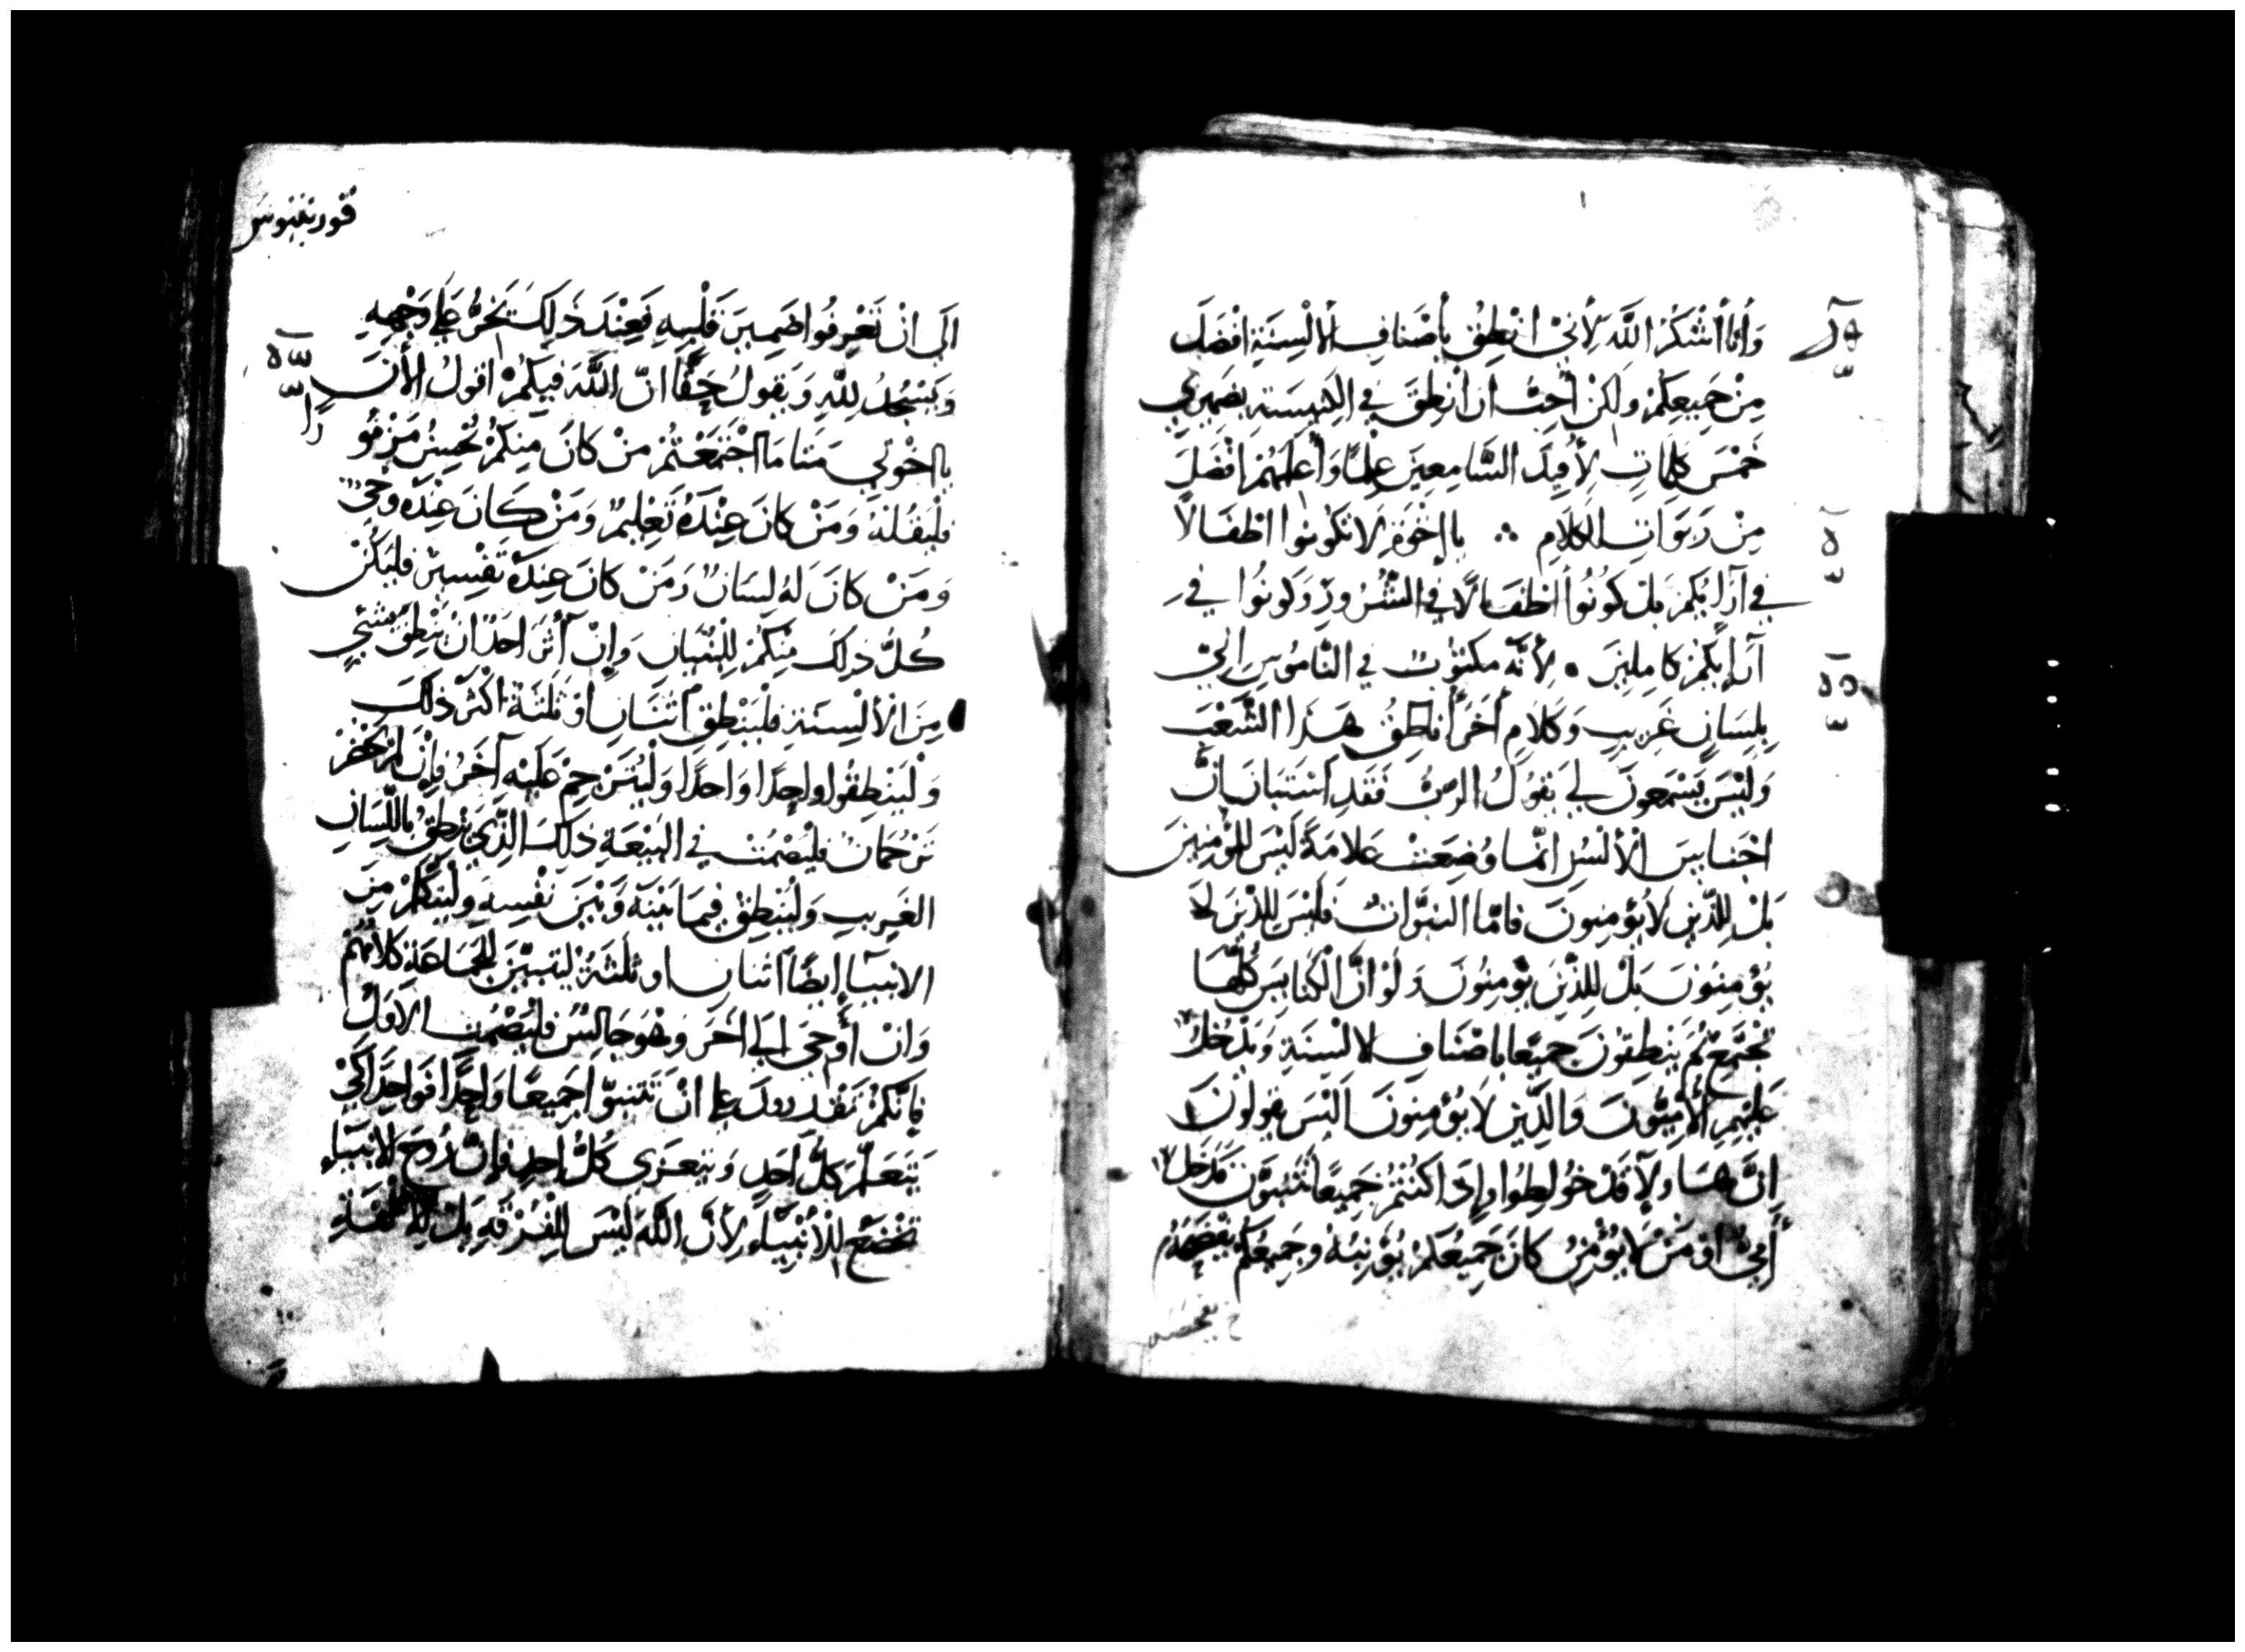 وَأَنَا أَشْكُرُ اللَّهَ لِأَنِّي انْطِقُ بِأَصْنَافِ الألْسِنَةِ افْضَلَ
مِنْ جَمِيعِكُمْ وَلَكِنْ أُحِبُّ ان انْطِقَ فِي الكَنِيسَةِ بِضَمِيرِي
خَمْسَ كَلِمَاتٍ لِأُفِيدَ السَّامِعِينَ عِلْمًا وَأُعَلِّمَهُمْ افْضَلَ
مِنْ رَبَوَاتِ الكَلَامِ ∴ يا إخْوَةِ لَا تَكُونُوا اطْفَالًا
فِي آرَايِكُمْ بَلْ كُونُوا اطْفَالًا فِي الشُّرُورِ وَكُونُوا فِي
آرَايِكُمْ كَامِلِينَ • لِأَنَّهُ مَكْتُوبٌ فِي النَّامُوسِ انِّي
بِلِسَانٍ غَرِيبٍ وَكَلَامٍ أُخَرَ أُنَاطِقُ هَذَا الشَّعْبَ
وَلَيْسَ يَسْمَعُونَ لِي يَقُولُ الرَّبُّ فَقَدِ اسْتَبَانَ انَّ
اجْنَاسَ الْأَلْسُنِ انَّمَا وُضِعَتْ عَلَامَةً لَيْسَ لِلْمُؤْمِنِينَ
بَلْ لِلَّذِينَ لَا يُؤْمِنُونَ فَامَّا النبوَّاتُ فَلَيْسَ لِلَّذِينَ لَا
يُؤْمِنُونَ بَلْ لِلَّذِينَ يُؤْمِنُونَ وَلَوْ انَّ الْكَنَايِسَ كُلَّهَا
تَجْتَمِعُ ثُمَّ يَنْطِقُونَ جَمِيعًا بِاصْنَافِ الالْسِنَةِ وَيَدْخُلُ
عَلَيْهِمِ الْأُمِّيُّونَ وَالَّذِينَ لَا يُؤْمِنُونَ الَيْسَ يَقُولُونَ
انَّ هَاوُلَآ قَدْ خُولِطُوا وَإِذَا كُنْتُمْ جَمِيعًا تَتَنَبَّوْنَ فَدَخَلَ
أُمِّيٌّ اوْ مَنْ لَا يُؤْمِنُ كَانَ جَمِيعُكُمْ يُؤَنِّبُهُ وَجَمِيعُكُمْ يَفْحَصُهُ
قورنثيوس
الَى انْ تَعْرِفُوا ضَمِيرَ قَلْبِهِ فَعِنْدَ ذَلِكَ يَخِرُّ عَلَى وَجْهِهِ
وَيَسْجُدُ لِلَّهِ وَيَقُولُ حَقًّا انَّ اللَّهَ فِيكُمْ اقُولُ الْأَنَ
يا اخْوَتِي مَتَا مَا اجْتَمَعْتُمْ مَنْ كَانَ مِنْكُمْ يُحْسِنُ مَزْمُو
فليقُلْهُ وَمَنْ كَانَ عِنْدَهُ تَعْلِيمٌ وَمَنْ كَانَ عِنْدَهُ وَحْيٌ
وَمَنْ كَانَ لَهُ لِسَانٌ وَمَنْ كَانَ عِنْدَهُ تَفْسِيرٌ فَلْيَكُنْ
كُلُّ ذَلِكَ مِنْكُمْ لِلْبُنْيَانِ وَإِنْ آثَرَ احَدٌ انْ يَنْطِقَ بِشَيْءٍ
مِنَ الْأَلْسِنَةِ فَلْيَنْطِقِ اثْنَانِ اوْ ثَلَثَةٌ اكْثَرَ ذَلِكَ
وَلْيَنْطِقُوا وَاحِدًا وَاحِدًا وَلْيُتَرْجِمْ عَلَيْهِ آخَرُ فَإِنْ لَمْ يَحْضُرْ
تَرْجُمَانٌ فَلْيَصْمُتْ فِي الْبِيعَةِ ذَلِكَ الَّذِي يَنْطِقُ بِاللِّسَانِ
الغَرِيبِ وَلْيَنْطِقْ فِيمَا بَيْنَهُ وَبَيْنَ نَفْسِهِ وَلْيَتَكَلَّمْ مِنَ
الانْبِيَاءِ ايْضًا اثْنَانِ او ثَلَثَةٌ ليتبيّنَ لِلْجَمَاعَةِ كَلَامُهُمْ
وَانْ أُوحِيَ الَى اخَرَ وَهُوَ جَالِسٌ فَلْيَصْمُتِ الاوَّلُ
فَانَّكُمْ تَقْدِرُونَ عَلَى انْ تَتَنَبَّوْا جَمِيعًا وَاحِدًا فَوَاحِدًا كَيْ
يَتَعَلَّمَ كُلُّ احَدٍ وَيَتَعَزَّى كُلُّ احِدٍ فَإِنَّ رُوحَ الانْبِيَاءِ
تَخْضَعُ لِلْأَنْبِيَاءِ لِأَنَّ اللَّهَ لَيْسَ لِلْفُرْقَةِ بَلْ